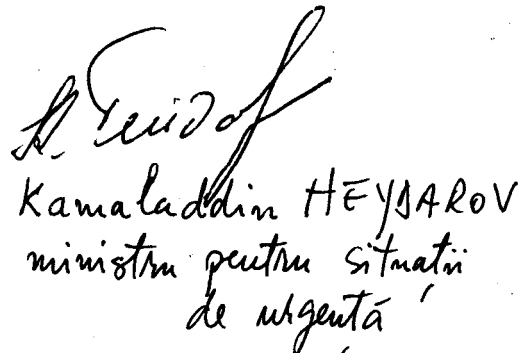 Kamaladdin HEYDAROV
ministru pentru situații
de urgență